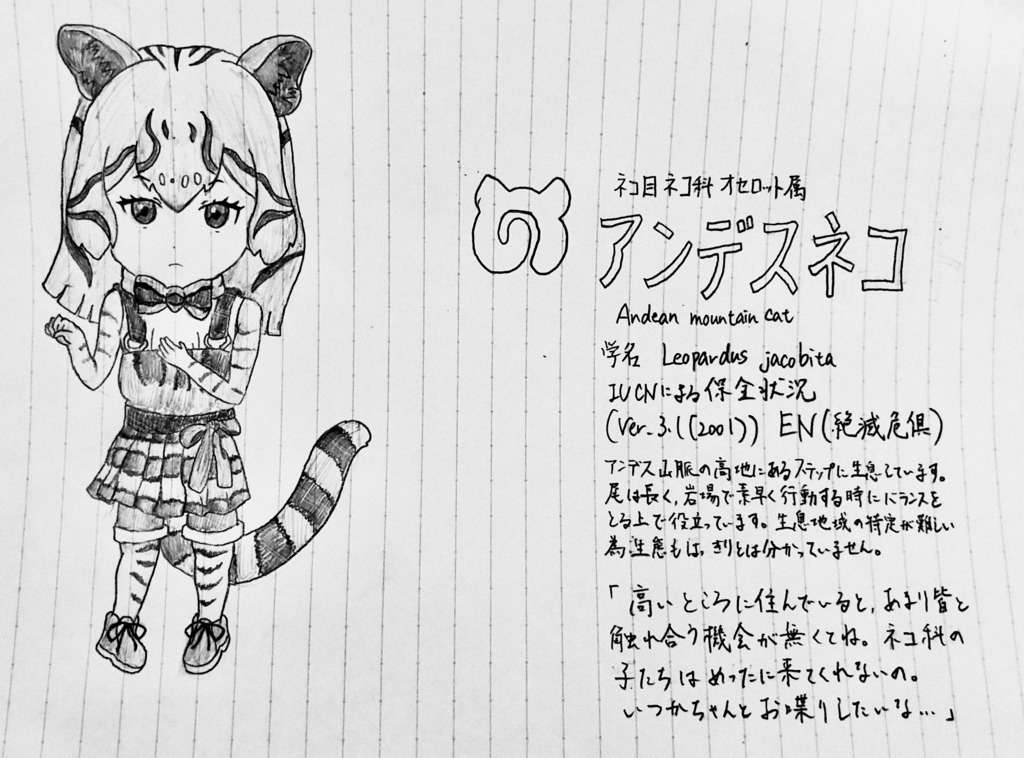 ネコ目ネコ科オセロット属
の
アンデスネコ
Andean mountain cat
学名 Leopardus jacobita
IUCNによる保全状況
(Ver.3.1(2001)) EN(絶滅危俱)
アンデス山脈の高地にあるステップに生息しています。
尾は長く、岩場で素早く行動する時にバランスを
とる上で役立っています。生息地域の特定が難しい
為、生態もはっきりとは分かっていません。
「高いところに住んでいると、あまり皆と
触れ合う機会が無くてね。ネコ科の
子たちはめったに来てくれないの。
いつかちゃんとお喋りしたいな…」